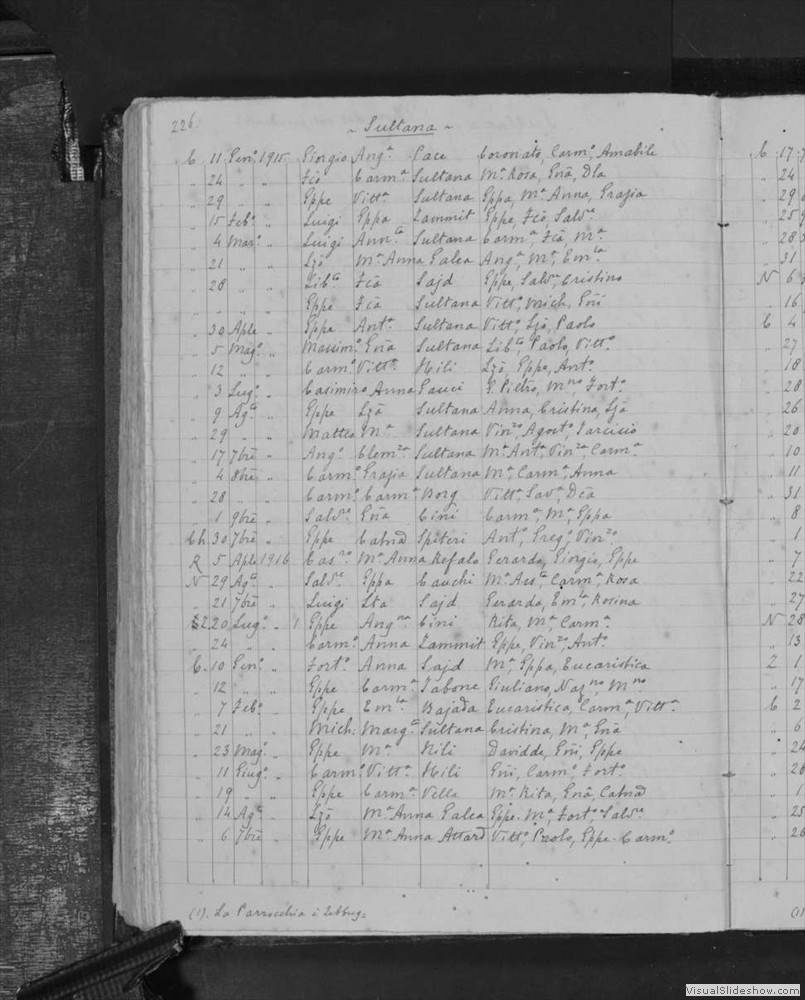 226.
~ Sultana ~
C. 11 Gen.º 1915 Giorgio Ang.ª Pace Coronato, Carm.º, Amabile
„ 24 „ „ Fcõ Carm.ª Sultana M.ª Rosa, Gnã, Dla
„ 29 „ „ Gppe Vitt.ª Sultana Gppa, M.ª Anna, Grazia
„ 15 Feb.º „ Luigi Gppa Zammit Gppe, Fcõ, Salv.re
„ 4 Mar.º „ Luigi Ann.ta Sultana Carm.ª, Fcã, M.ª
„ 21 „ „ Lzõ M.ª Anna Galea Ang.ª, M.ª, Em.la
„ 28 „ „ Lib.to Fcã Sajd Gppe, Salv.re, Cristino
„ „ „ „ Gppe Fcã Sultana Vitt.º, Mich, Gnã
„ 30 Aple „ Gppe Ant.ª Sultana Vitt.º, Lzõ, Paolo
„ 5 Mag.º „ Massim.º Gnã Sultana Lib.ta, Paolo, Vitt.º
„ 12 „ „ Carm.º Vitt.ª Hili Lzõ, Gppe, Ant.º
„ 3 Lug.º „ Casimiro Anna Gauci G. Pietro, M.no, Fort.º
„ 9 Ag.to „ Gppe Lzã Sultana Anna, Cristina, Lzõ
„ 29 „ „ Matteo M.ª Sultana Vin.zo, Agost.º, Tarcisio
„ 17 7bre „ Ang.º Clem.za Sultana M.ª Ant.ª, Vin.za, Carm.ª
„ 4 8bre „ Carm.º Grazia Sultana M.ª, Carm.ª, Anna
„ 28 „ „ Carm.º Carm.ª Borg Vitt.ª, Sav.ª, Dca
„ 1 9bre „ Salv.re Gnã Cini Carm.ª, M.ª, Gppa
Ch. 30 7bre „ Gppe Catnã Spiteri Ant.º, Greg.º, Vin.zo
R 5 Aple 1916 M.ª Anna Refalo Gerardo, Giorgio, Gppe
N 29 Ag.to „ Salv.re Gppa Cauchi M.ª Ass.ta, Carm.ª, Rosa
„ 21 7bre „ Luigi Sta Sajd Gerarda, Em.la, Rosina
20 Lug.º „ 1 Gppe Ang.ca Cini Rita, M.ª, Carm.ª
„ 24 „ „ Carm.º Anna Zammit Gppe, Vin.zo, Ant.º
C. 10 Gen.º „ Fort.º Anna Sajd M.ª, Gppa, Eucaristica
„ 12 „ „ Gppe Carm.ª Tabone Giuliano, Naz.no, M.no
„ 7 Feb.º „ Gppe Em.la Bajada Eucaristica, Carm.ª, Vitt.ª
„ 21 „ „ Mich: Marg.ta Sultana Cristina, M.ª, Gnã
„ 23 Mag.º „ Gppe M.ª Hili Davidde, Gñi, Gppe
„ 11 Giug.º „ Carm.º Vitt.ª Hili Gñi, Carm.º, Fort.º
„ 19 „ „ Gppe Carm.ª Vella M.ª Rita, Gnã, Catnã
„ 14 Ag.to „ Lzõ M.ª Anna Galea Gppe M.ª, Fort.º, Salv.re
„ 6 7bre „ Gppe M.ª Anna Attard Vitt.º, Paolo, Gppe Carm.º
(1). La Parrocchia è Zebbug.
C 17
„ 24
„ 29
„ 25
„ 28
„ 31
N 6
„ 16
C 4
„ 27
„ 18
„ 28
„ 26
„ 20
„ 10
„ 11
„ 31
„ 8
„ 1
„ 7
„ 22
„ 27
N 28
„ 13
Z 1
„ 17
C 2
„ 6
„ 24
„ 28
„ 1
„ 25
„ 26
(1)
VisualSlideshow.com